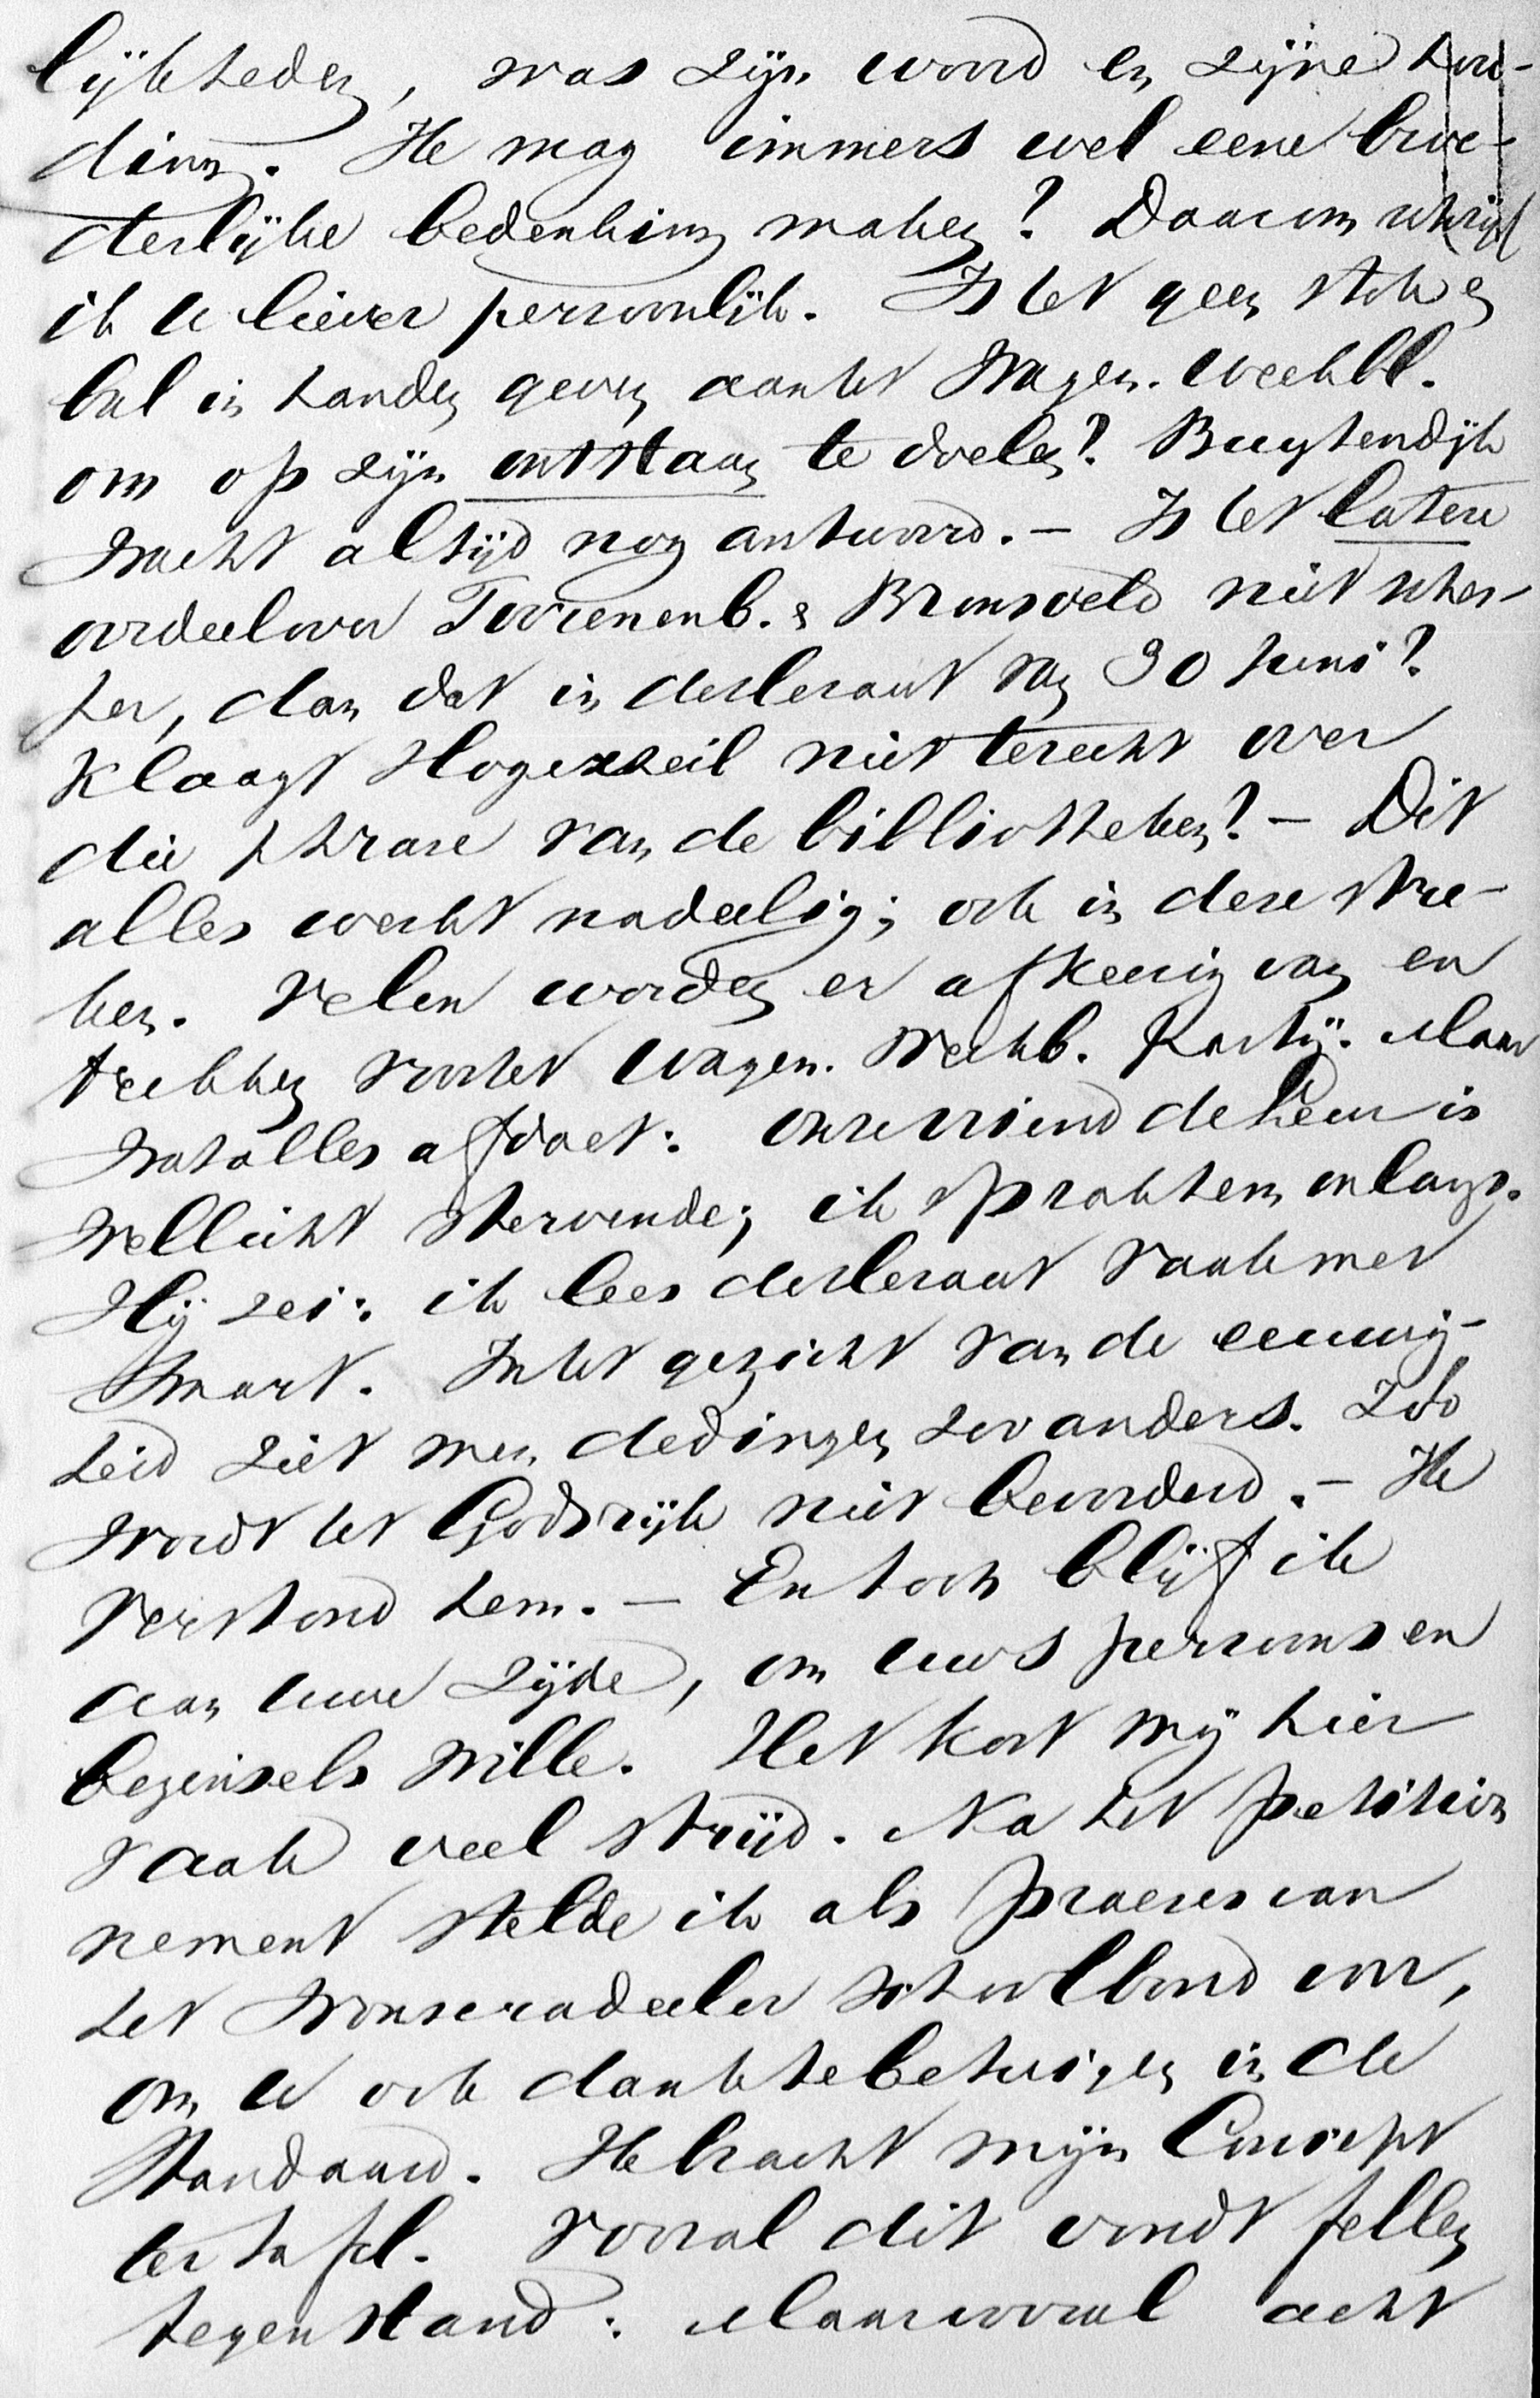 lijkheden, was zijn woord en zijne hou-
ding. Ik mag immers wel eene broe-
derlijke bedenking maken? Daarom schrijf
ik U liever persoonlijk. Is het geen stok en
bal in handen geven aan het Wagen. Weekbl.
om op zijn ontstaan te doelen? Buytendijk
wacht altijd nog antwoord. – Is het latere
oordeel over Toorenenb. & Bronsveld niet scher-
per, dan dat in de Heraut van 30 Juni?
Klaagt Hogerzeil niet terecht over
die phrase van de bibliotheken? – Dit
alles werkt nadeelig; ook in deze stre-
ken. Velen worden er afkeerig van en
trekken voor het Wagen. Weekb. partij. Maar
wat alles afdoet: onze vriend de Heer is
wellicht stervende; ik sprak hem onlangs.
Hij zei: ik lees de Heraut vaak met
smart. In het gezicht van de eeuwig-
heid ziet men de dingen zoo anders. Zóó
wordt het Godsrijk niet bevorderd. – Ik
verstond hem. – En toch blijf ik
aan uwe zijde, om uws persoons en
beginsels wille. Het kost mij hier
vaak veel strijd. Na het petition
nement stelde ik als praeses van
het Wonseradeeler schoolbond voor,
om U ook dank te betuigen in de
Standaard. Ik bracht mijn Concept
ter tafel. Vooral dit vondt fellen
tegenstand: Maar vooral acht